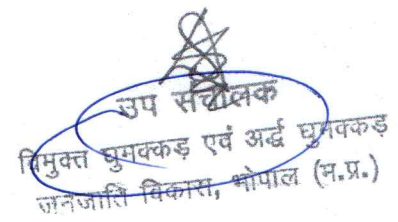 उप संचालक
विमुक्त घुमक्कड़ एवं अर्द्ध घुमक्कड़
जनजाति विकास, भोपाल (म.प्र.)